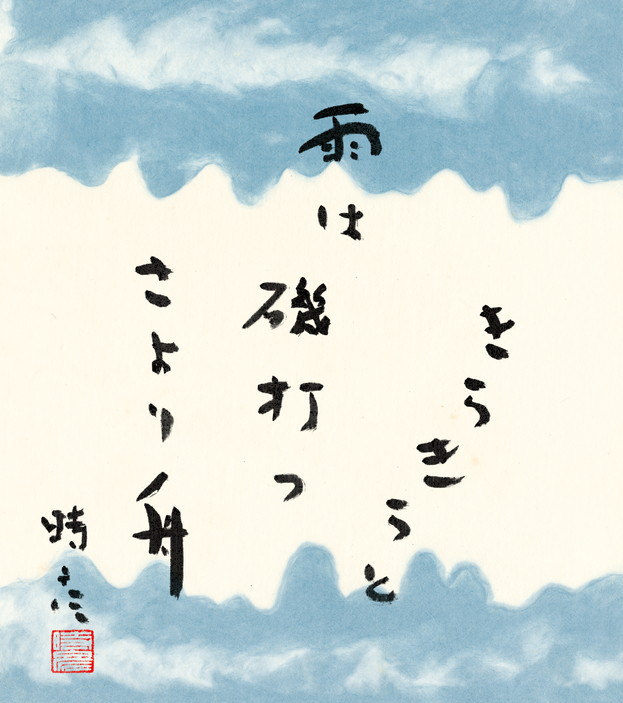 きらきらと
雨は磯打つ
さより舟
時彦